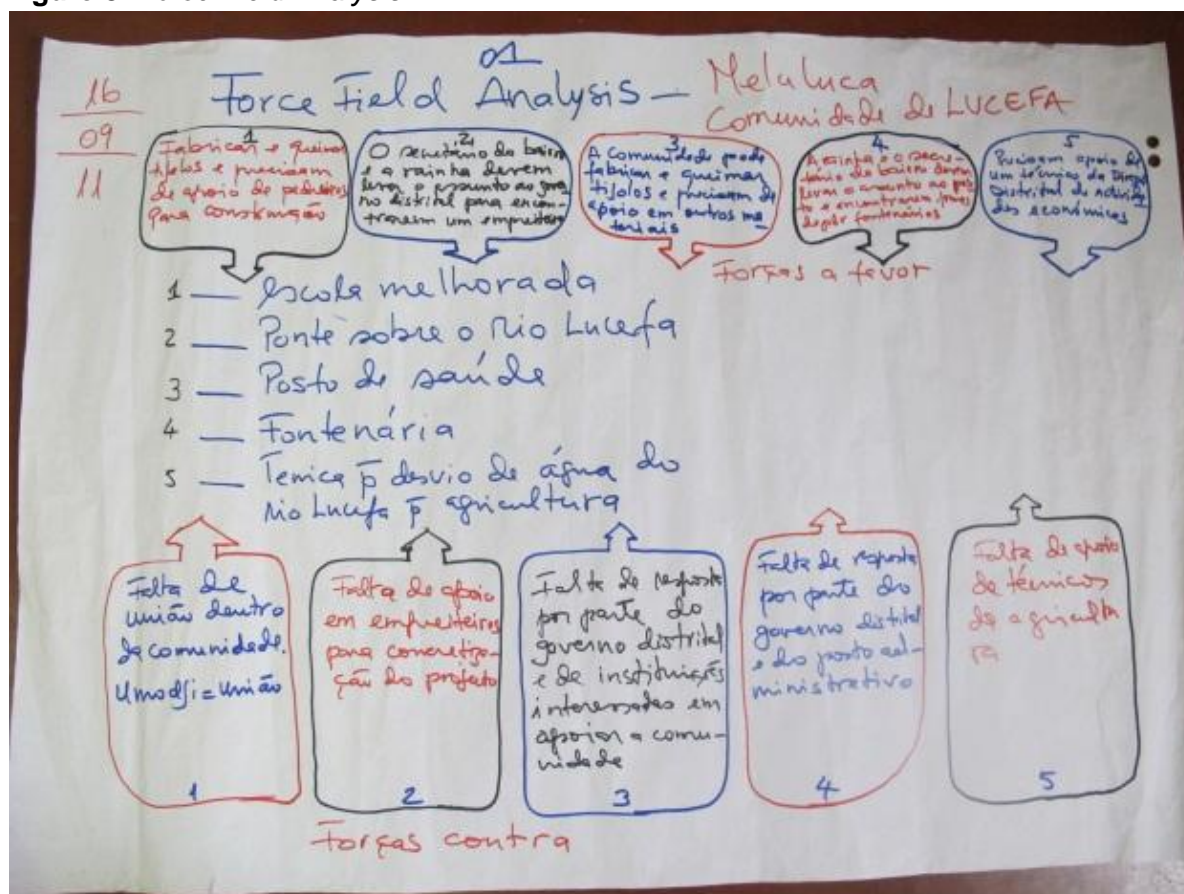 01
Force Field Analysis — Meluluca
Comunidade de LUCEFA
16
09
11
1
Fabricar e queimar
tijolos e precisam
de apoio de pedreiros
para construção
2
O secretário do bairro
e a rainha devem
levar o assunto ao gover
no distrital para encon-
trarem um empreiteiro
3
A comunidade pode
fabricar e queimar
tijolos e precisam de
apoio em outros ma-
teriais
4
A rainha e o secre-
tário do bairro devem
levar o assunto ao
e encontrarem
fontenários
5
Precisam apoio de
um técnico da
Distrital de activida
des económicas
Forças a favor
1 — Escola melhorada
2 — Ponte sobre o Rio Lucefa
3 — Posto de saúde
4 — Fontenária
5 — Tecnica p̄ desvio de água do
rio Lucefa p̄ agricultura
Falta de
união dentro
da comunidade.
Umodji = união
1
Falta de apoio
em empreiteiros
para concretiza-
ção do projeto
2
Falta de resposta
por parte do
governo distrital
e de instituições
interessadas em
apoiar a comu-
nidade
3
Falta de resposta
por parte do
governo distrital
e do posto ad-
ministrativo
4
Falta de apoio
de técnicos
de agricultu
ra
5
Forças contra